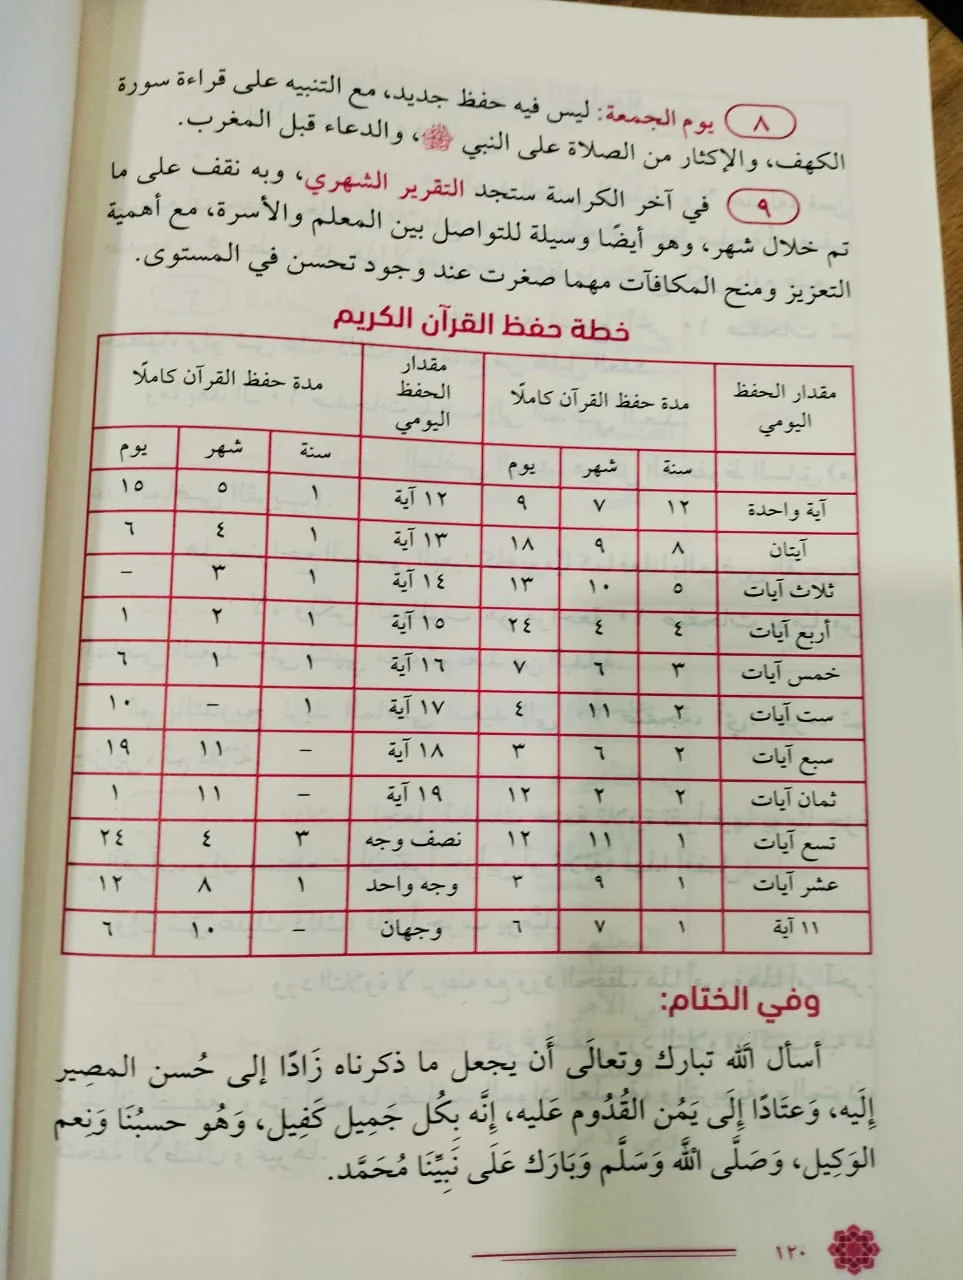 ٨ يوم الجمعة: ليس فيه حفظ جديد، مع التنبيه على قراءة سورة
الكهف، والإكثار من الصلاة على النبي ﷺ، والدعاء قبل المغرب.
٩ في آخر الكراسة ستجد التقرير الشهري، وبه نقف على ما
تم خلال شهر، وهو أيضًا وسيلة للتواصل بين المعلم والأسرة، مع أهمية
التعزيز ومنح المكافآت مهما صغرت عند وجود تحسن في المستوى.
خطة حفظ القرآن الكريم
مقدار الحفظ اليومي | مدة حفظ القرآن كاملًا | مقدار الحفظ اليومي | مدة حفظ القرآن كاملًا
سنة | شهر | يوم | سنة | شهر | يوم
آية واحدة | ١٢ | ٧ | ٩ | ١٢ آية | ١ | ٥ | ١٥
آيتان | ٨ | ٩ | ١٨ | ١٣ آية | ١ | ٤ | ٦
ثلاث آيات | ٥ | ١٠ | ١٣ | ١٤ آية | ١ | ٣ | –
أربع آيات | ٤ | ٤ | ٢٤ | ١٥ آية | ١ | ٢ | ١
خمس آيات | ٣ | ٦ | ٧ | ١٦ آية | ١ | ١ | ٦
ست آيات | ٢ | ١١ | ٤ | ١٧ آية | ١ | – | ١٠
سبع آيات | ٢ | ٦ | ٣ | ١٨ آية | – | ١١ | ١٩
ثمان آيات | ٢ | ٢ | ١٢ | ١٩ آية | – | ١١ | ١
تسع آيات | ١ | ١١ | ١٢ | نصف وجه | ٣ | ٤ | ٢٤
عشر آيات | ١ | ٩ | ٣ | وجه واحد | ١ | ٨ | ١٢
١١ آية | ١ | ٧ | ٦ | وجهان | – | ١٠ | ٦
وفي الختام:
أسأل الله تبارك وتعالَى أَن يجعل ما ذكرناه زَادًا إلى حُسن المصِير
إِلَيه، وَعَتَادًا إِلَى يَمُن القُدُوم عَليه، إِنَّه بِكُل جَمِيل كَفِيل، وَهُو حسبُنَا وَنِعم
الوَكِيل، وَصَلَّى اللَّه وَسَلَّم وَبَارَك عَلَى نَبِيِّنَا مُحَمَّد.
١٢٠